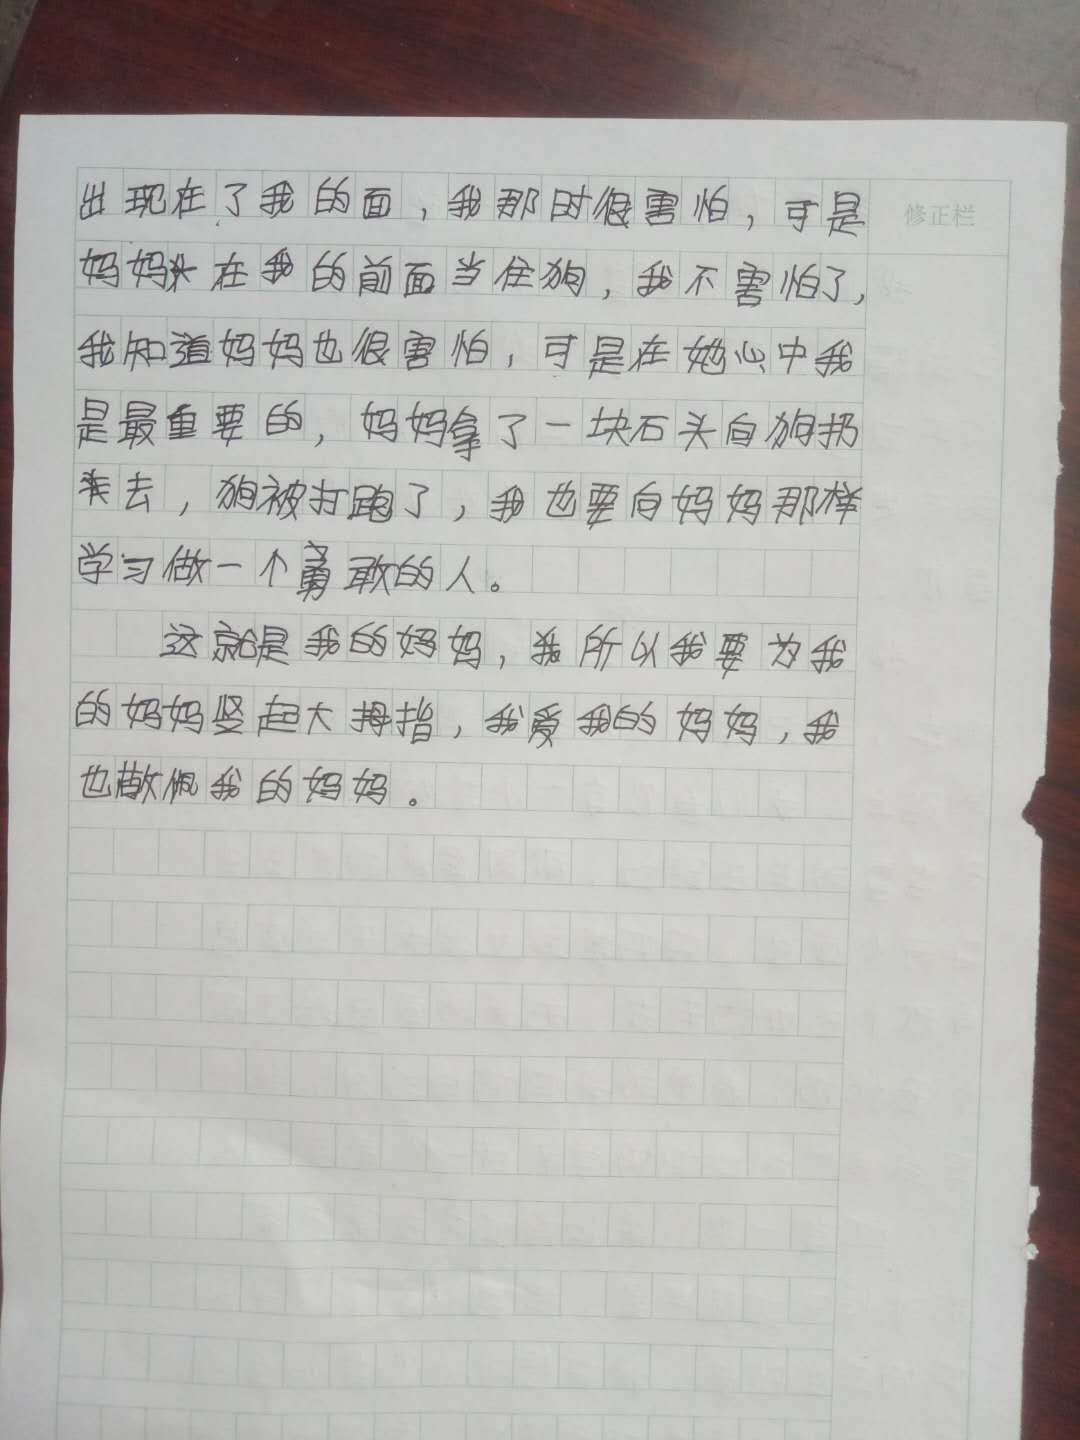 出现在了我的面，我那时很害怕，可是
修正栏
妈妈头在我的前面当住狗，我不害怕了，
我知道妈妈也很害怕，可是在她心中我
是最重要的，妈妈拿了一块石头向狗扔
去，狗被打跑了，我也要向妈妈那样
学习做一个勇敢的人。
这就是我的妈妈，我所以我要为我
的妈妈竖起大拇指，我爱我的妈妈，我
也敬佩我的妈妈。